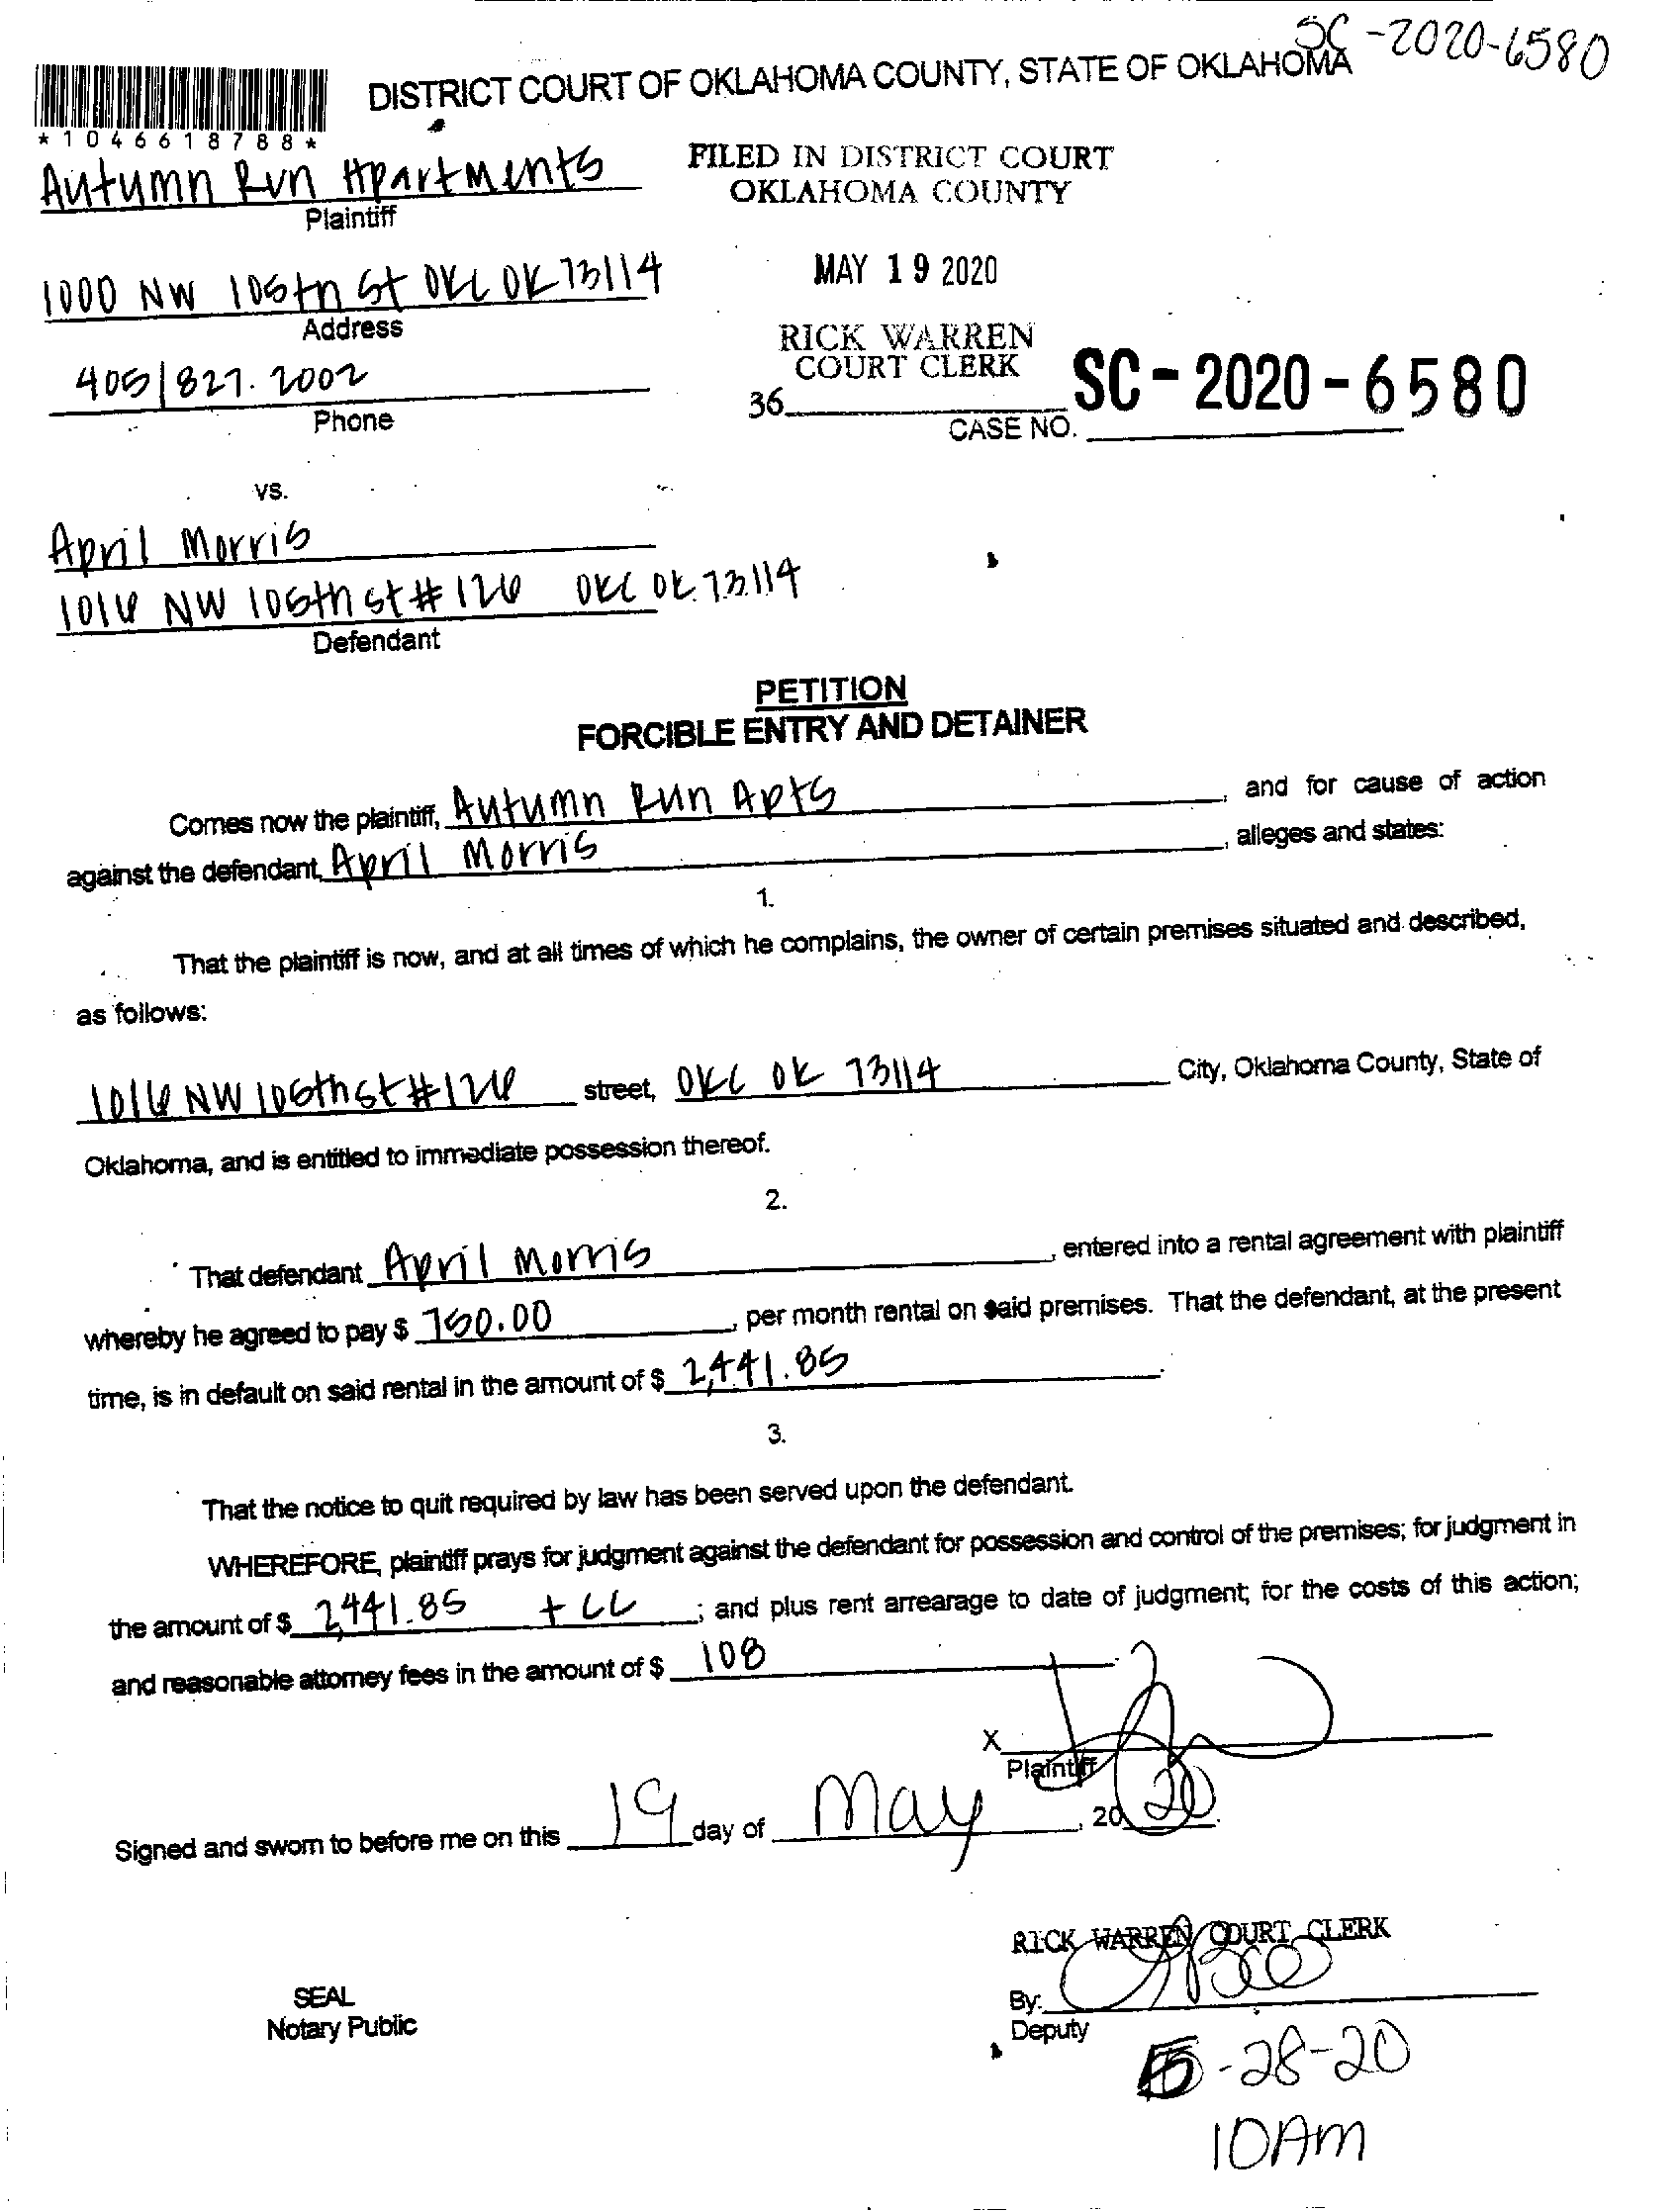 SC-2020-6580
DISTRICT COURT OF OKLAHOMA COUNTY, STATE OF OKLAHOMA
*1046618788*
Autumn Run Apartments
Plaintiff
FILED IN DISTRICT COURT
OKLAHOMA COUNTY
1000 NW 105th St OKC OK 73114
Address
MAY 19 2020
405|827.2002
Phone
RICK WARREN
COURT CLERK
36
CASE NO. SC-2020-6580
vs.
April Morris
1016 NW 106th st #126 OKC OK 73114
Defendant
PETITION
FORCIBLE ENTRY AND DETAINER
Comes now the plaintiff, Autumn Run Apts, and for cause of action
against the defendant, April Morris, alleges and states:
1.
That the plaintiff is now, and at all times of which he complains, the owner of certain premises situated and described,
as follows:
1016 NW 106th st #126 street, OKC OK 73114 City, Oklahoma County, State of
Oklahoma, and is entitled to immediate possession thereof.
2.
That defendant April Morris, entered into a rental agreement with plaintiff
whereby he agreed to pay $ 750.00, per month rental on said premises. That the defendant, at the present
time, is in default on said rental in the amount of $ 2,441.85.
3.
That the notice to quit required by law has been served upon the defendant.
WHEREFORE, plaintiff prays for judgment against the defendant for possession and control of the premises; for judgment in
the amount of $ 2,441.85 + CC; and plus rent arrearage to date of judgment; for the costs of this action;
and reasonable attorney fees in the amount of $ 108
X
Plaintiff
Signed and sworn to before me on this 19 day of May, 2020.
RICK WARREN COURT CLERK
By:
Deputy
SEAL
Notary Public
5-28-20
10AM